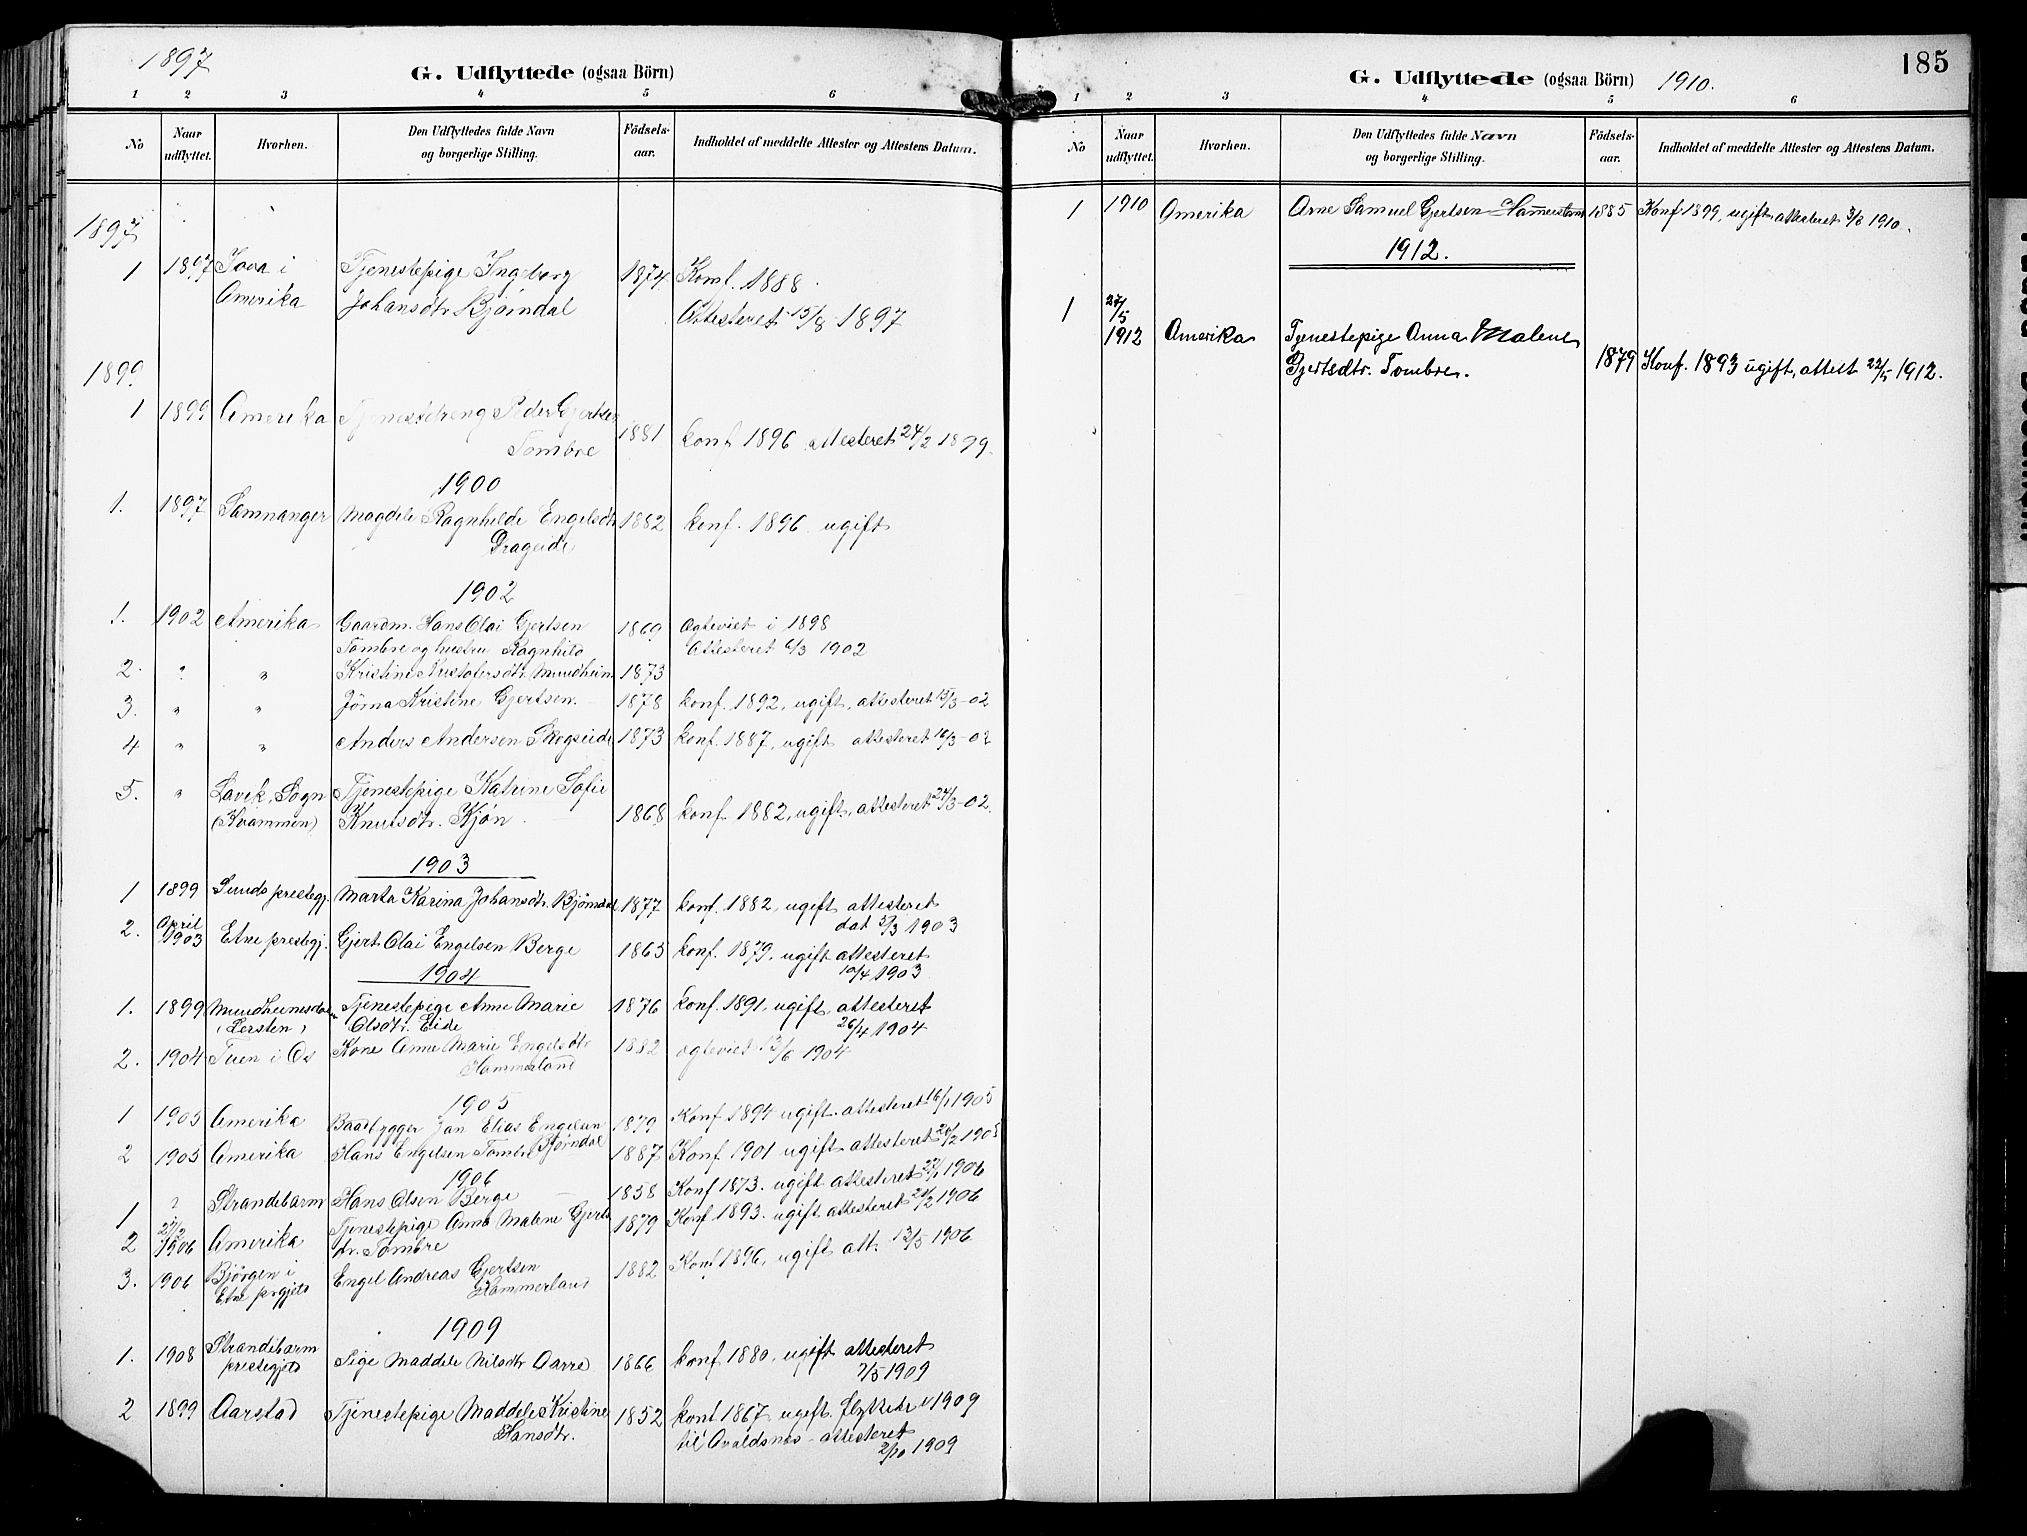 1897
G. Udflyttede (ogsaa Börn)
1 2 3 4 5 6
No Naar udflyttet. Hvorhen. Den Udflyttedes fulde Navn og borgerlige Stilling. Födsels-aar. Indholdet af meddelte Attester og Attestens Datum.
1897
1 1897 Iova i Tjenestepige Ingeborg 1874 Konf. 1888.
Amerika Johansdtr Bjørndal Attesteret 15/8 1897
1899
1 1899 Amerika Tjenestdreng Peder Gjertsen
Tombre 1881 konf 1896 attesteret 24/2 1899.
1900
1. 1897 Samnanger Magdele Ragnhilde Engelsdtr 1882 konf. 1896 ugift
Drageide
1902
1. 1902 Amerika Gaardm. Hans Olai Gjertsen 1869 Ogteviet i 1898
Tombre og hustru Ragnhild Attesteret 6/3 1902
2. " " Kristine Kristofersdtr. Mundheim 1873
3. " " Jørna Kristine Gjertsen. 1878 konf. 1892, ugift, attesteret 15/3-02
4 " " Anders Andersen Skogseide 1873 konf. 1887, ugift attesteret 16/3-02
5. " Lavik, Sogn Tjenestepige Katrine Sofie
(Kvammen) Knutsdtr. Kjøn 1868 konf. 1882, ugift, attesteret 24/3-02.
1903
1 1899 Sunds prestegj. Marta Karina Johansdtr. Bjørndal 1877 konf. 1882, ugift attesteret
dat 3/3 1903
2. April 1903 Etne prestegj. Gjert Olai Engelsen Berge 1865 konf. 1879, ugift attesteret
10/4 1903
1904
1. 1899 Mundheimsdalen Tjenestepige Anne Marie 1876 konf. 1891, ugift, attesteret
Olsdtr. Eide 26/4 1904
2. 1904 Tuen i Os Kone Anne Marie Engelsdtr 1882 ogteviet 13/6 1904
Hammerland
1905
1 1905 Amerika Baadbygger Jan Elias Engelsen 1879 Konf 1894 ugift. attesteret 16/1 1905
Bjørndal
2 1905 Amerika Hans Engelsen Tombre 1887 Konf 1901 ugift attesteret 20/2 1905
1906
1 ? Strandebarm Hans Olsen Berge 1858 Konf 1873. ugift attesteret 22/1 1906
2 27/2 1906 Amerika Tjenestepige Anna Malene Gjerts 1879 Konf 1893. ugift attesteret 21/2 1906
dtr. Tombre
3. 1906 Bjørgen i Engel Andreas Gjertsen 1882 Konf 1896, ugift att. 13/5 1906
Etne prgjeld Hammerland
1909
1. 1908 Strandebarm Pige Maddele Nilsdtr Aarre 1866 konf 1880, ugift attesteret
prestegjeld 7/5 1909
2 1899 Aarstad Tjenestepige Maddele Kristine 1852 konf 1867, ugift. flyttede i 1909
Hansdtr. til Avaldsnes - attesteret
2/10 1909
185
G. Udflyttede (ogsaa Börn) 1910.
1 2 3 4 5 6
No Naar udflyttet. Hvorhen. Den Udflyttedes fulde Navn og borgerlige Stilling. Födsels-aar. Indholdet af meddelte Attester og Attestens Datum.
1 1910 Amerika Arne Samuel Gjertsen 1885 Konf 1899, ugift attesteret 3/8 1910.
1912.
1 27/5 1912 Amerika Tjenestepige Anna Malene
Gjertsdtr. Tombre. 1879 Konf. 1893 ugift, attest 22/5 1912.